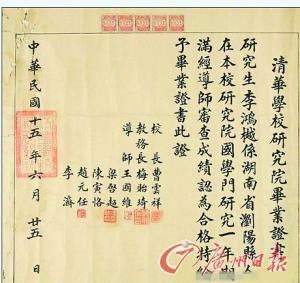 清華學校研究院畢業證書
研究生李鴻樾係湖南省瀏陽縣人
在本校研究院國學門研究一年期
滿經導師審查成績認為合格特給
予畢業證書此證
校長曹雲祥
教務長梅貽琦
導師王國維
梁啟超
陳寅恪
趙元任
李濟
中華民國十五年六月廿五日
廣州日報